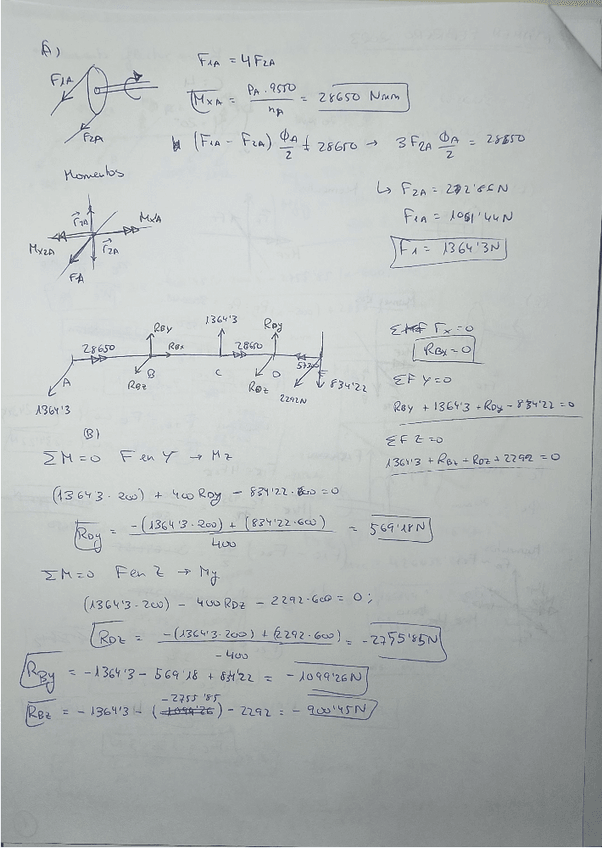 A)
F1A = 4F2A
F1A
F2A
MXA = PA · 9550 / nA = 28650 Nmm
(F1A - F2A) ϕA/2 = 28650 → 3F2A ϕA/2 = 28650
Momentos
↳ F2A = 272'86N
F1A = 1091'44N
F1 = 1364'3N
F2A
MXA
MX2A
F2A
FA
1364'3
RBy
RDy
28650
RBx
28650
RBz
RDz
A
B
C
D
834'22
1364'3
2292N
ΣF Fx = 0
RBx = 0
ΣF Y = 0
RBy + 1364'3 + RDy - 834'22 = 0
ΣF Z = 0
1364'3 + RBz + RDz + 2292 = 0
(B)
ΣM = 0 F en Y → Mz
(1364'3 · 200) + 400RDy - 834'22 · 600 = 0
RDy = -(1364'3 · 200) + (834'22 · 600) / 400 = 569'18N
ΣM = 0 F en Z → My
(1364'3 · 200) - 400RDZ - 2292 · 600 = 0;
RDZ = -(1364'3 · 200) + (2292 · 600) / -400 = -2755'85N
RBy = -1364'3 - 569'18 + 834'22 = -1099'26N
RBz = -1364'3 - (-2755'85) - 2292 = -900'45N